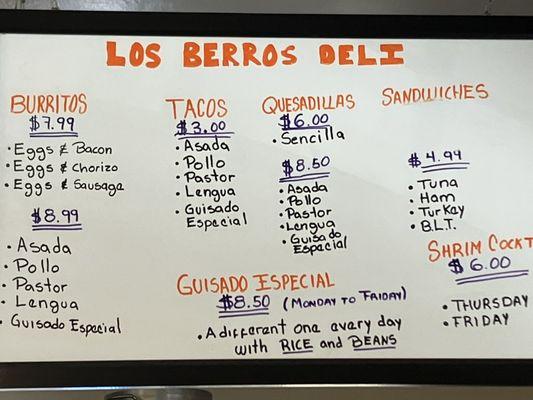 LOS BERROS DELI
BURRITOS
$7.99
• Eggs & Bacon
• Eggs & Chorizo
• Eggs & Sausaga
$8.99
• Asada
• Pollo
• Pastor
• Lengua
• Guisado Especial
TACOS
$3.00
• Asada
• Pollo
• Pastor
• Lengua
• Guisado
Especial
QUESADILLAS
$6.00
• Sencilla
$8.50
• Asada
• Pollo
• Pastor
• Lengua
• Guisado
Especial
SANDWICHES
$4.99
• Tuna
• Ham
• Turkay
• B.L.T.
SHRIM COCKT
$6.00
• THURSDAY
• FRIDAY
GUISADO ESPECIAL
$8.50 (MONDAY TO FRIDAY)
• A different one every day
with RICE and BEANS